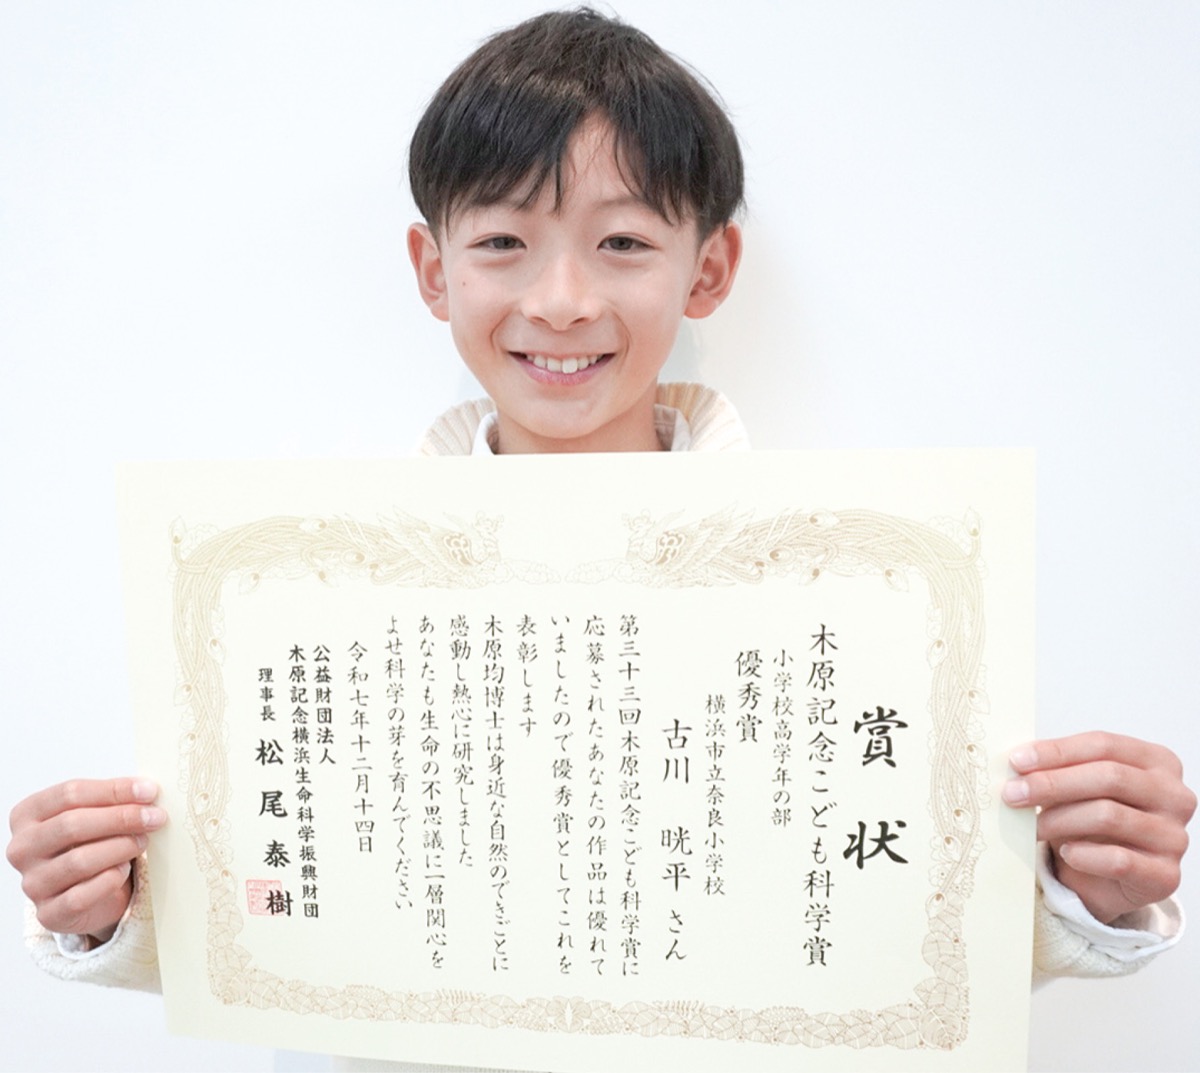 賞状
木原記念こども科学賞
小学校高学年の部
優秀賞
横浜市立奈良小学校
古川 晄平 さん
第三十三回木原記念こども科学賞に
応募されたあなたの作品は優れて
いましたので優秀賞としてこれを
表彰します
木原均博士は身近な自然のできごとに
感動し熱心に研究しました
あなたも生命の不思議に一層関心を
よせ科学の芽を育んでください
令和七年十二月十四日
公益財団法人
木原記念横浜生命科学振興財団
理事長 松尾泰樹